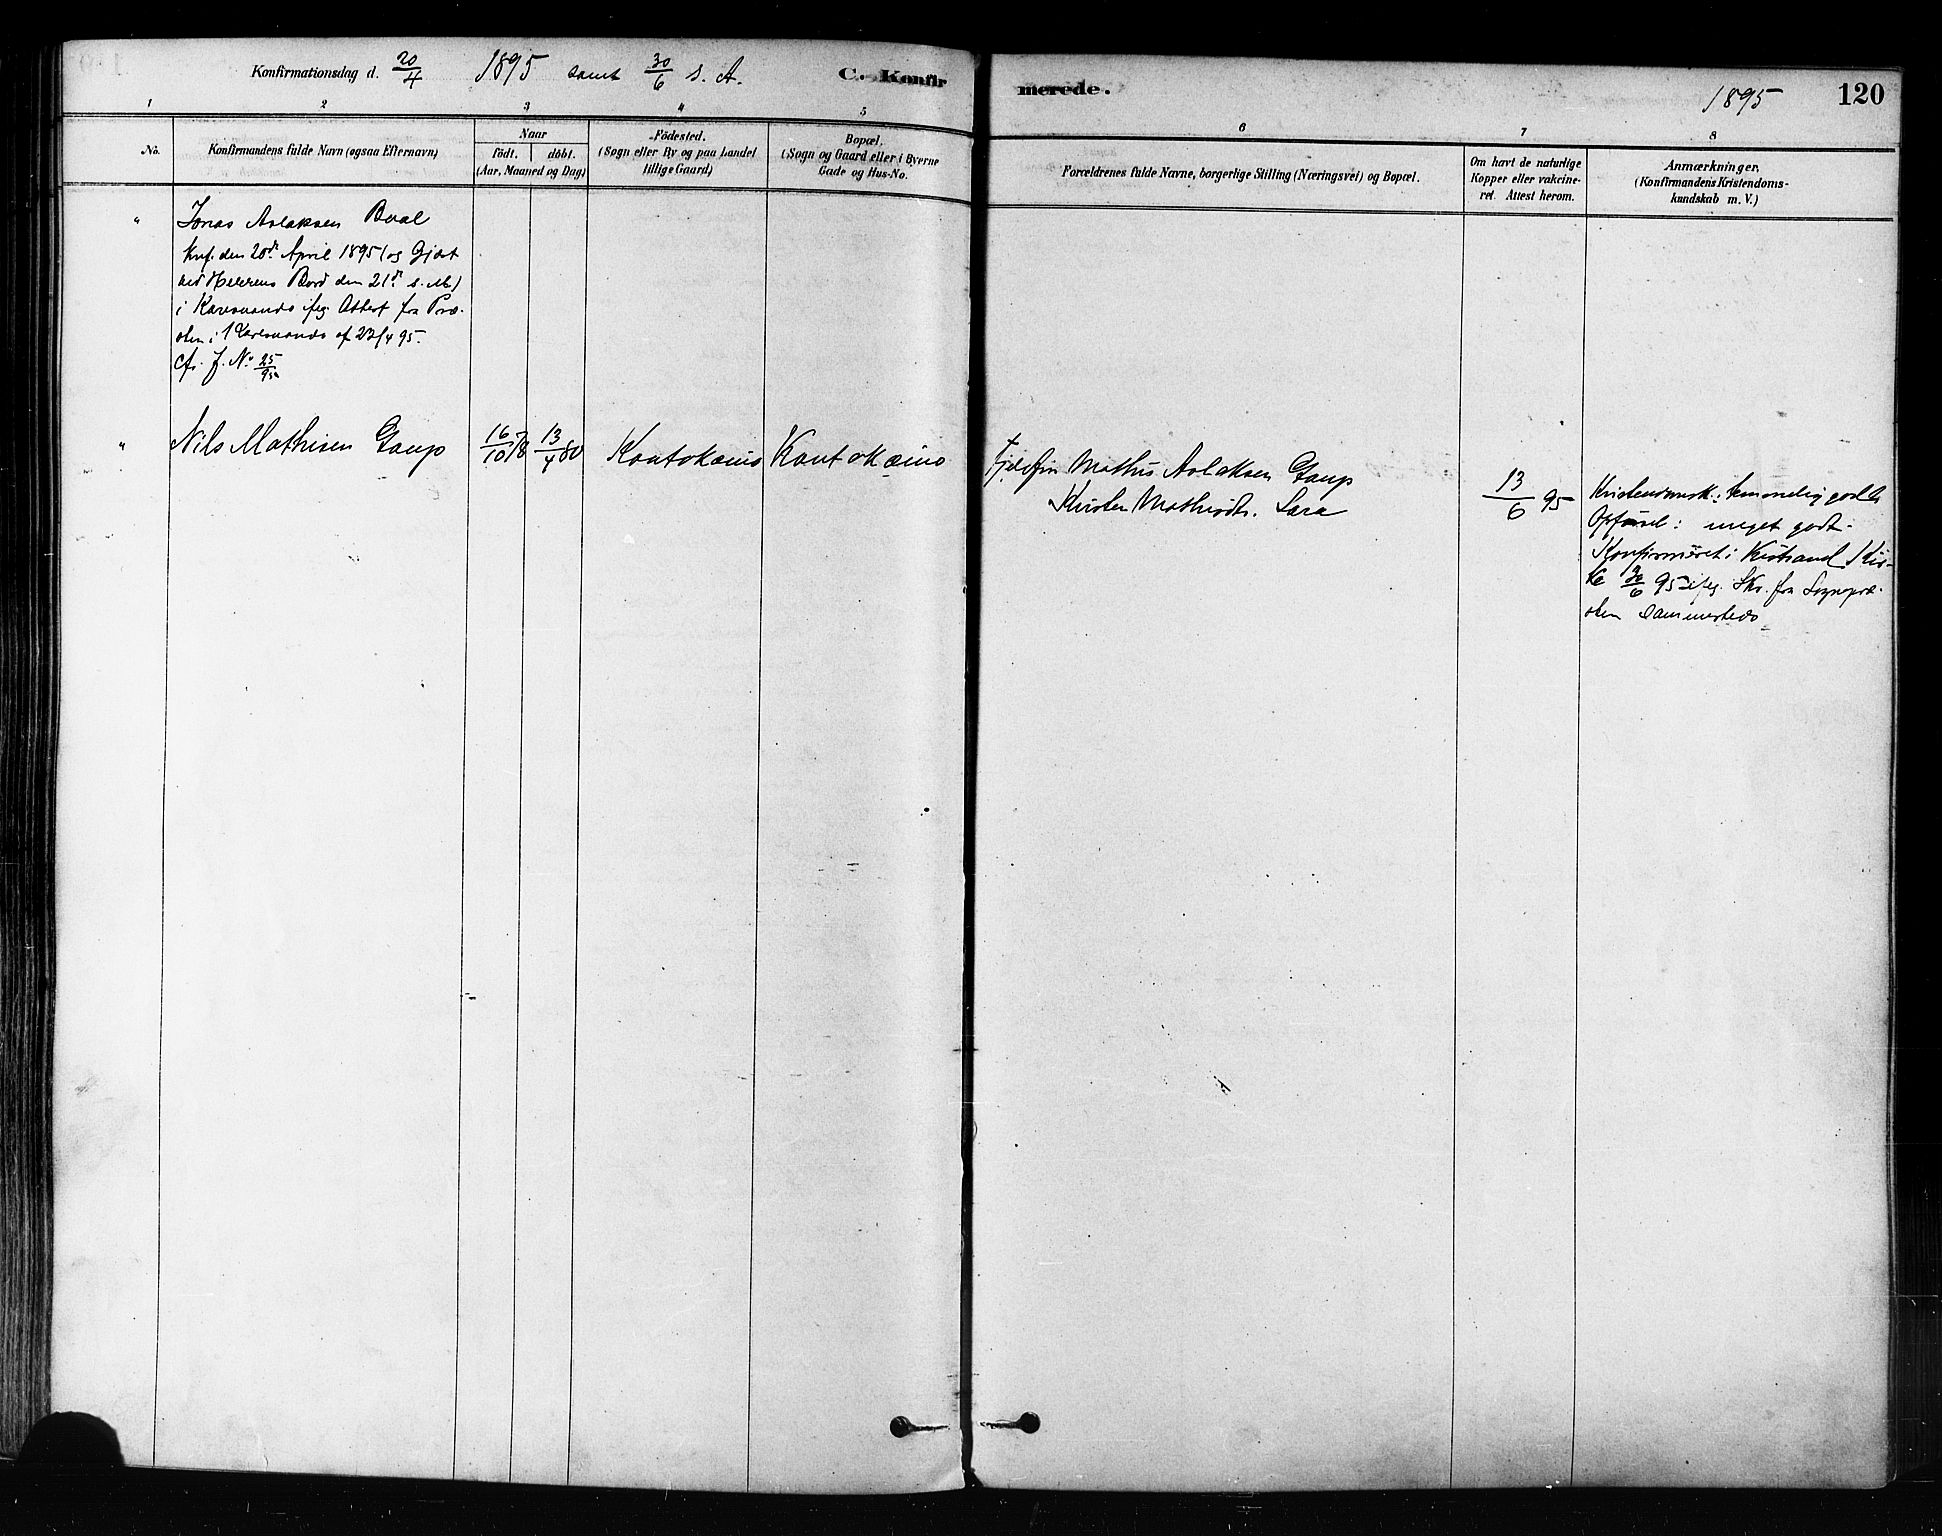 Konfirmationsdag d. 20/4 1895 samt 30/6 s. A.
C. Konfir
merede.
1895
120
1 2 3 4 5
6 7 8
No.
Konfirmandens fulde Navn (ogsaa Efternavn)
Naar
födt. döbt.
(Aar, Maaned og Dag)
Födested.
(Sogn eller By og paa Landet
tillige Gaard)
Bopæl.
(Sogn og Gaard eller i Byerne
Gade og Hus-No.
Forældrenes fulde Navne, borgerlige Stilling (Næringsvei) og Bopæl.
Om havt de naturlige
Kopper eller vakcine-
ret. Attest herom.
Anmærkninger,
(Konfirmandens Kristendoms-
kundskab m. V.)
" Jonas Aslaksen
Knf. den 20de April 1895 (og Gjæst
ved Herrens Bord den 21de s. M)
i Karesuando ifлg. Attest fra Præ-
sten i Karesuando af 23/4 95.
cfr. J. No 25/95
" Nils Mathisen Gaup
16/10 78
13/4 80
Kautokæino
Kautokæino
Fjeldfin Mathis Aslaksen Gaup
Kirsten Mathisdtr. Sara
13/6 95
Kristendomsk.: temmelig godt
Opförsel: meget godt.
Konfirmeret i Kistrand Kir-
ke 30/6 95 ifлg. Skr. fra Sognepræ-
sten Sammesteds